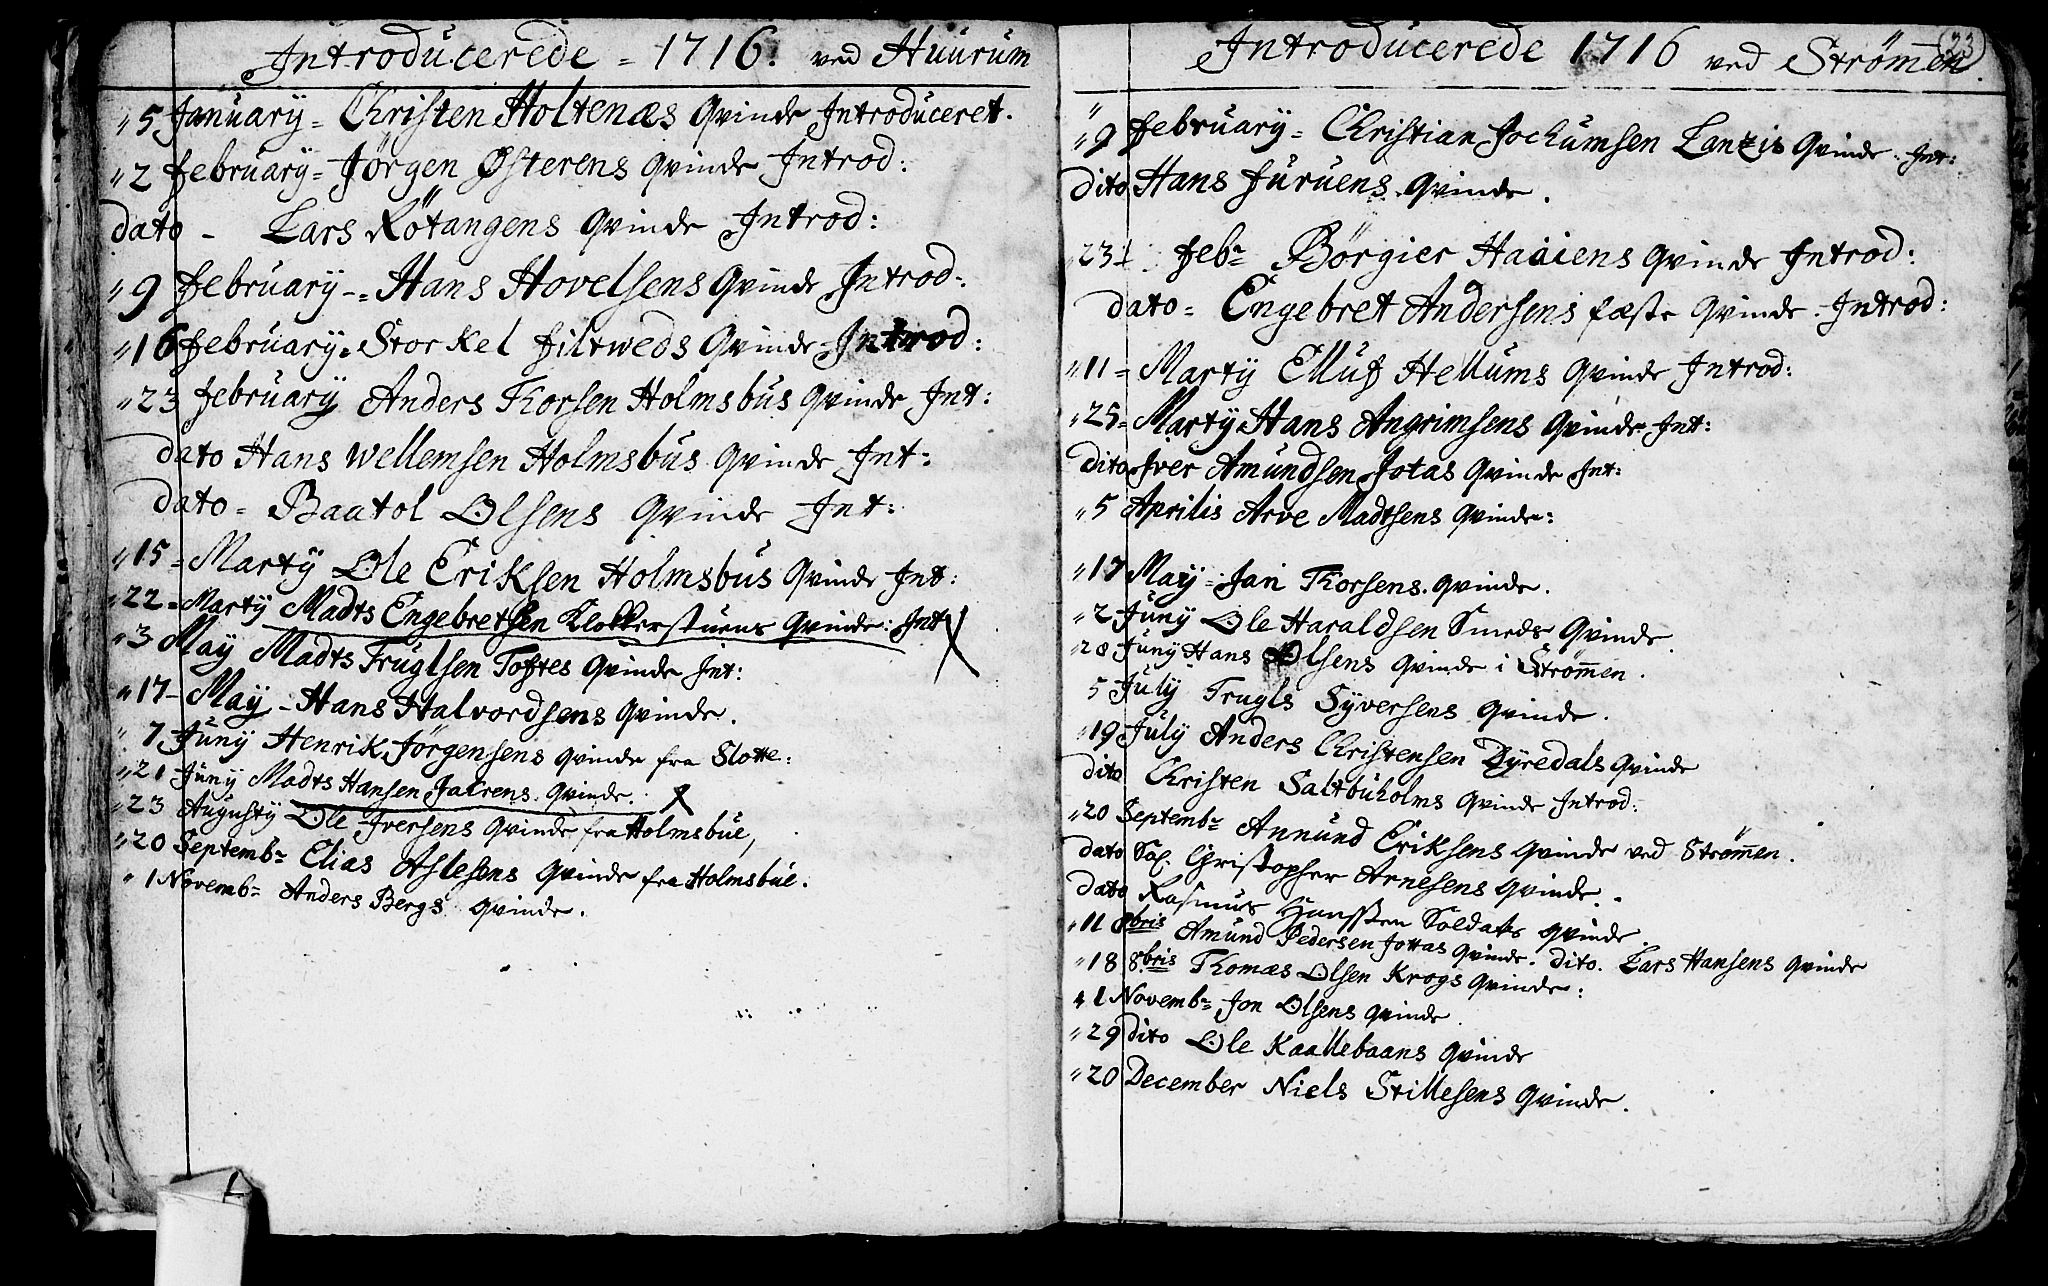 Introducerede = 1716. ved Huurum
" 5 January = Christen Holtenæs Qvinde Introduceret.
" 2 February = Jørgen Østerens Qvinde Introd:
dato - Lars Rötangens Qvinde Introd:
" 9 February -= Hans Hovelsens Qvinde Introd:
" 16 February = Storkel Filtweds Qvinde Introd:
" 23 February Anders Thorsen Holmsbùs Qvinde Int:
dato Hans Wellemsen Holmsbùs Qvinde Int:
dato = Baatol Olsens Qvinde Int:
" 15 = Martÿ Ole Eriksen Holmsbùs Qvinde Int:
" 22 = Martÿ Madts Engebretsen Klokkerstuens Qvinde: Int X
" 3 May Madts Truglsen Toftes Qvinde Int:
" 17 - May - Hans Halvordsens Qvinde.
" 7 Juny Henrik Jørgensens Qvinde fra Slotte:
" 21 Juny Madts Hansen Jaerens Qvinde. X
" 23 Augusty Ole Iversens Qvinde fra Holmsbùe,
" 20 Septembr Elias Aslesens Qvinde fra Holmsbùe.
" 1 Novembr Anders Bergs Qvinde.
23
Introducerede 1716 ved Strömen.
" 9 February = Christian Jochumsen Lantzis Qvinde Int:
dito Hans Furuens Qvinde.
23 Febr Börgier Haaiens Qvinde Introd:
dato = Engebret Andersens fæste Qvinde. Introd:
" 11 = Martÿ Elluf Hellums Qvinde Introd:
" 25 = Martÿ Hans Angrimsens Qvinde Int:
dito Iver Amundsen Jotas Qvinde Int:
" 5 Aprilis Arve Madtsens Qvinde:
" 17 May = Jan Thorsens Qvinde.
" 2 Juny Ole Haraldsen Smeds Qvinde.
" 28 Juny Hans Olsens Qvinde i Strömen.
5 July Trugls Syversens Qvinde.
" 19 July Anders Christensen Dyredals Qvinde
dito Christen Saltbùholms Qvinde Introd:
" 20 Septembr Annund Eriksens Qvinde ved Strömen.
dato Sal. Christopher Arnesens Qvinde.
dato Rasmus Hanssen Soldats Qvinde.
" 11 8bris Amund Pedersen Jottas Qvinde. dito. Lars Hansens Qvinde
" 18 8bris Thomæs Olsen Krogs Qvinde:
" 1 Novembr Jon Olsens Qvinde
" 29 dito Ole Kaallebaans Qvinde
" 20 December Niels Stillesens Qvinde.